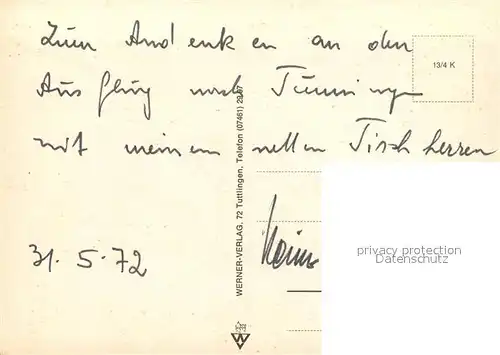 Zum Andenken an den
Ausflug nach Tunningen
mit meinem netten Tischherren
31.5.72
Heinz
13/4 K
WERNER-VERLAG, 72 Tuttlingen, Telefon (07461) 2967
privacy protection
Datenschutz